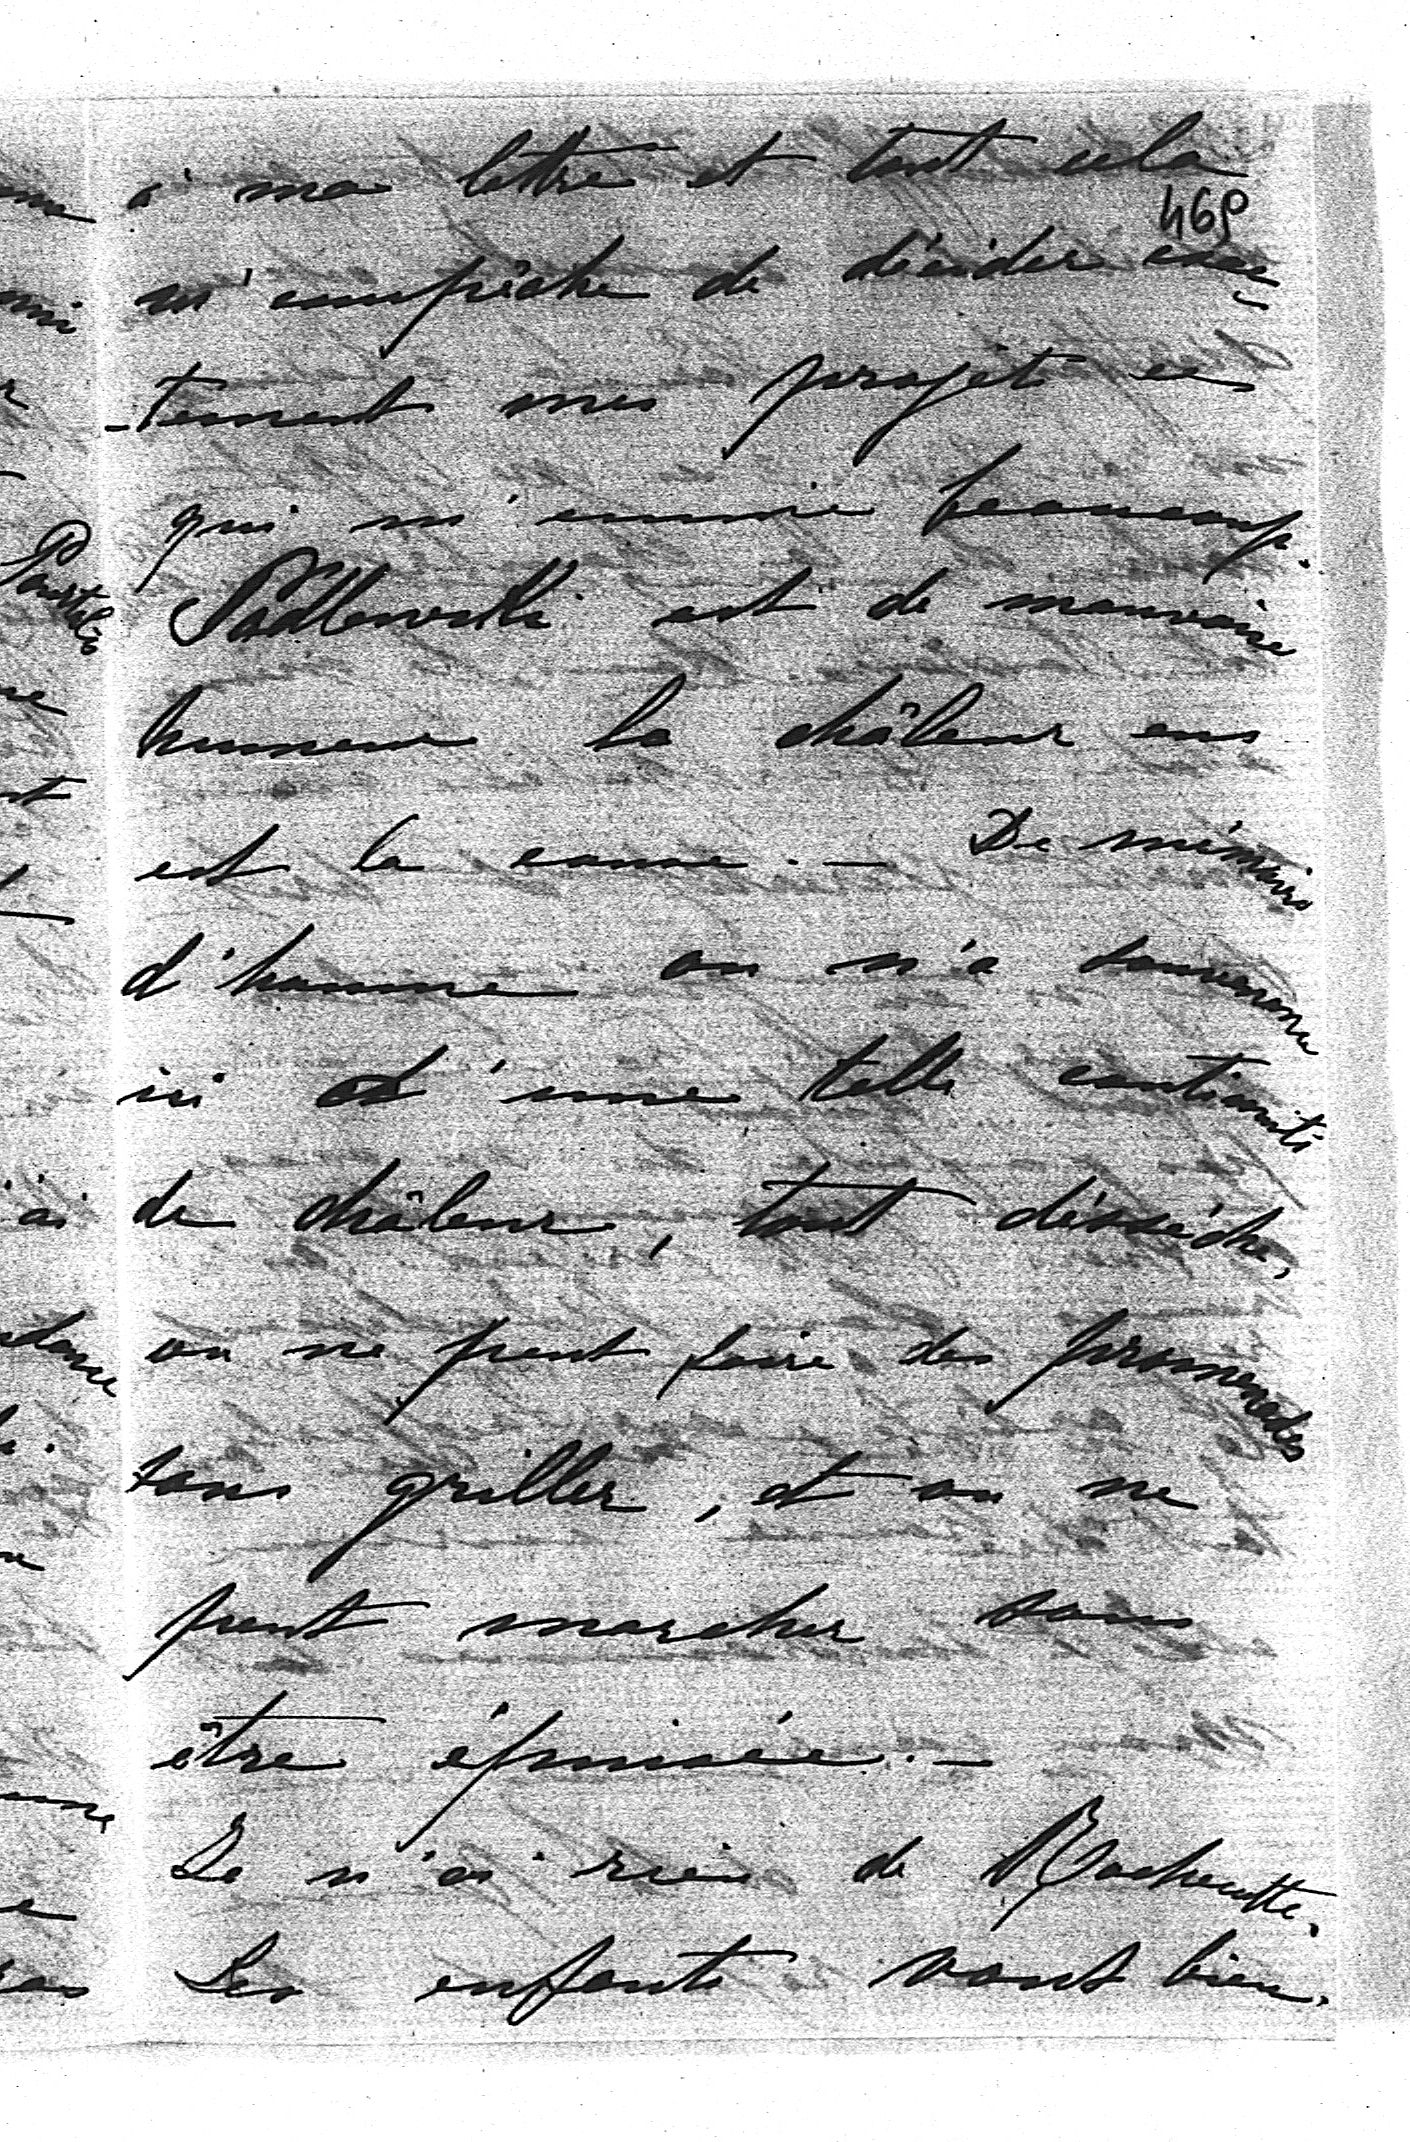 à ma lettre et tout cela
469
m'empêche de décider exac
-tement mes projets ce
qui m'ennuie beaucoup.
Padlewski est de mauvaise
humeur la châleur en
est la cause. — De mémoire
d'homme on n'a souvenance
ici d'une telle continuité
de châleur, tout déssèche,
on ne peut faire des promenades
sans griller, et on ne
peut marcher sans
être épuisée. —
Je n'ai rien de
Les enfants vont bien.